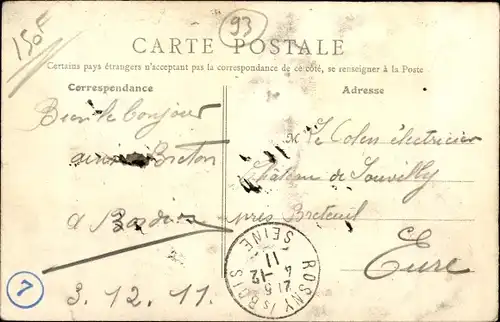 150F
93
CARTE POSTALE
Certains pays étrangers n'acceptant pas la correspondance de ce côté, se renseigner à la Poste
Correspondance
Adresse
Bien le bonjour
Breton
a
3.12.11.
7
M Le Colen électricien
Château de
près Breteuil
Eure
ROSNY SS BOIS
SEINE
4 -12
11